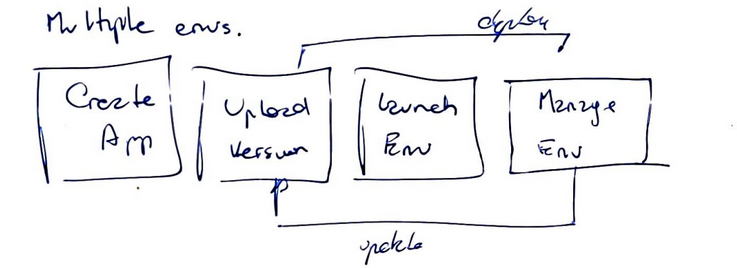 Multiple envs.
deploy
Create
App
Upload
Version
Launch
Env
Manage
Env
update